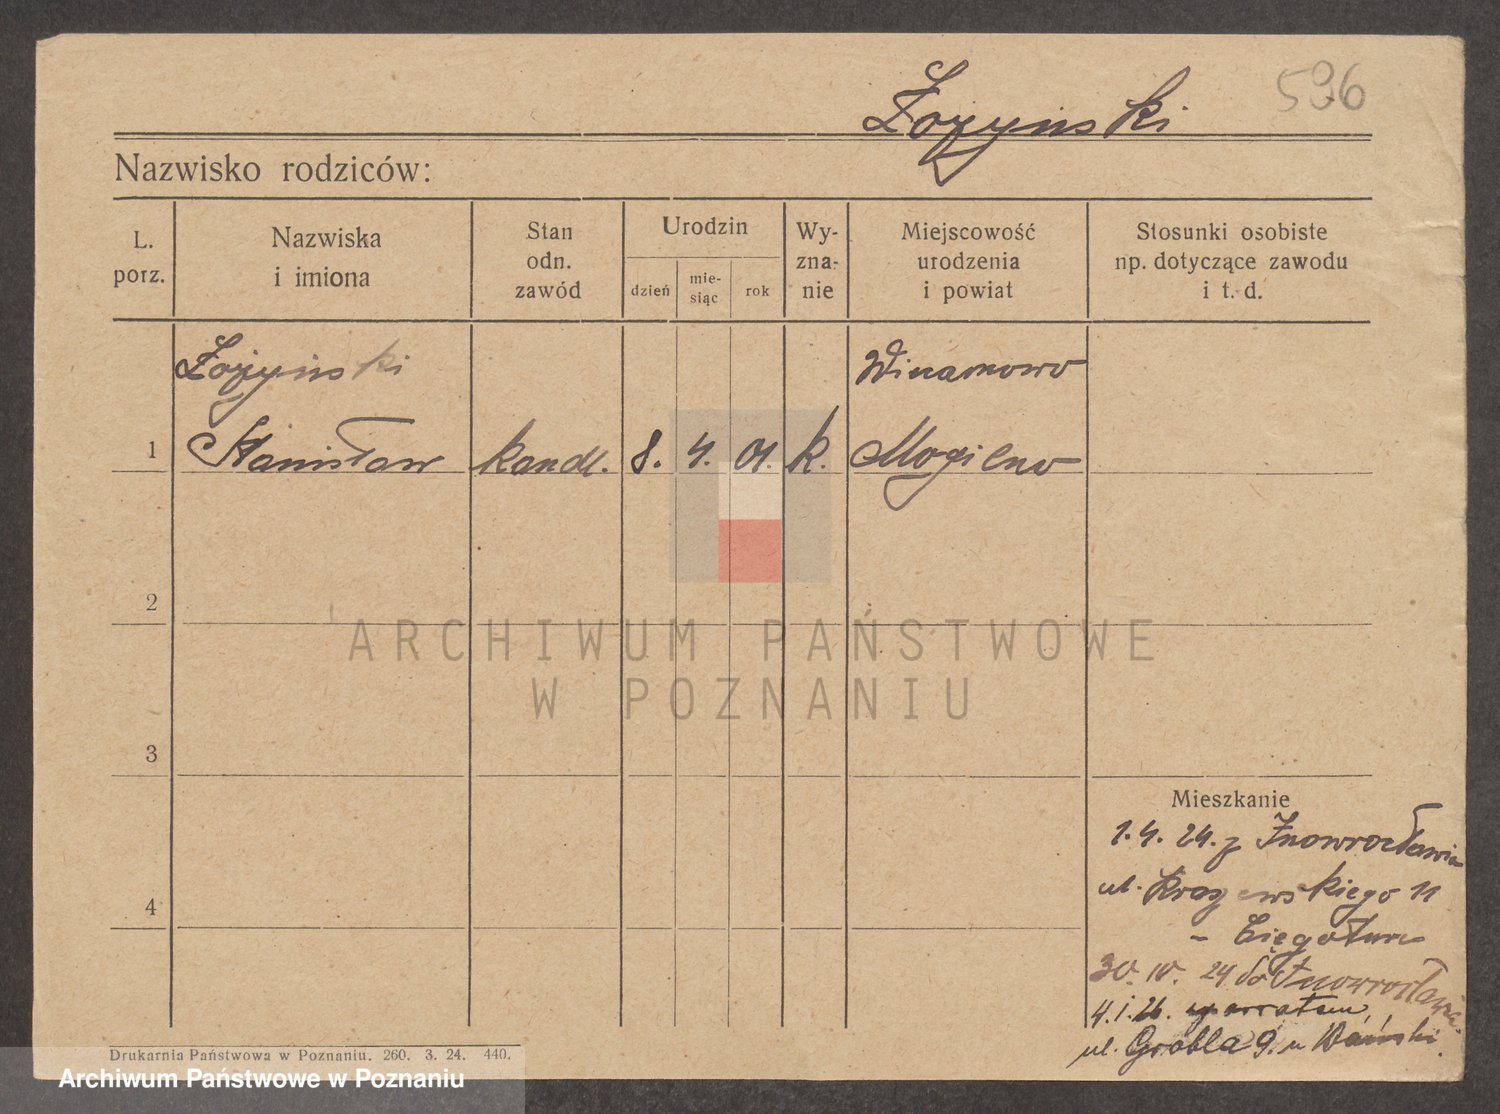 596
Nazwisko rodziców:
L. porz.
Nazwiska i imiona
Stan odn. zawód
Urodzin
dzień
mie-siąc
rok
Wy-zna-nie
Miejscowość urodzenia i powiat
Stosunki osobiste np. dotyczące zawodu i t. d.
1
Stanisław
kandl.
8.
4.
01.
k.
Mogilno
2
3
4
Mieszkanie
1.4.24. z Inowrocławia
ul. Kraszewskiego 11
30. 10. 24 do Inowrocławia
4.1.26.
ul. Grobla 9. u
Drukarnia Państwowa w Poznaniu. 260. 3. 24. 440.
ARCHIWUM PAŃSTWOWE
W POZNANIU
Archiwum Państwowe w Poznaniu